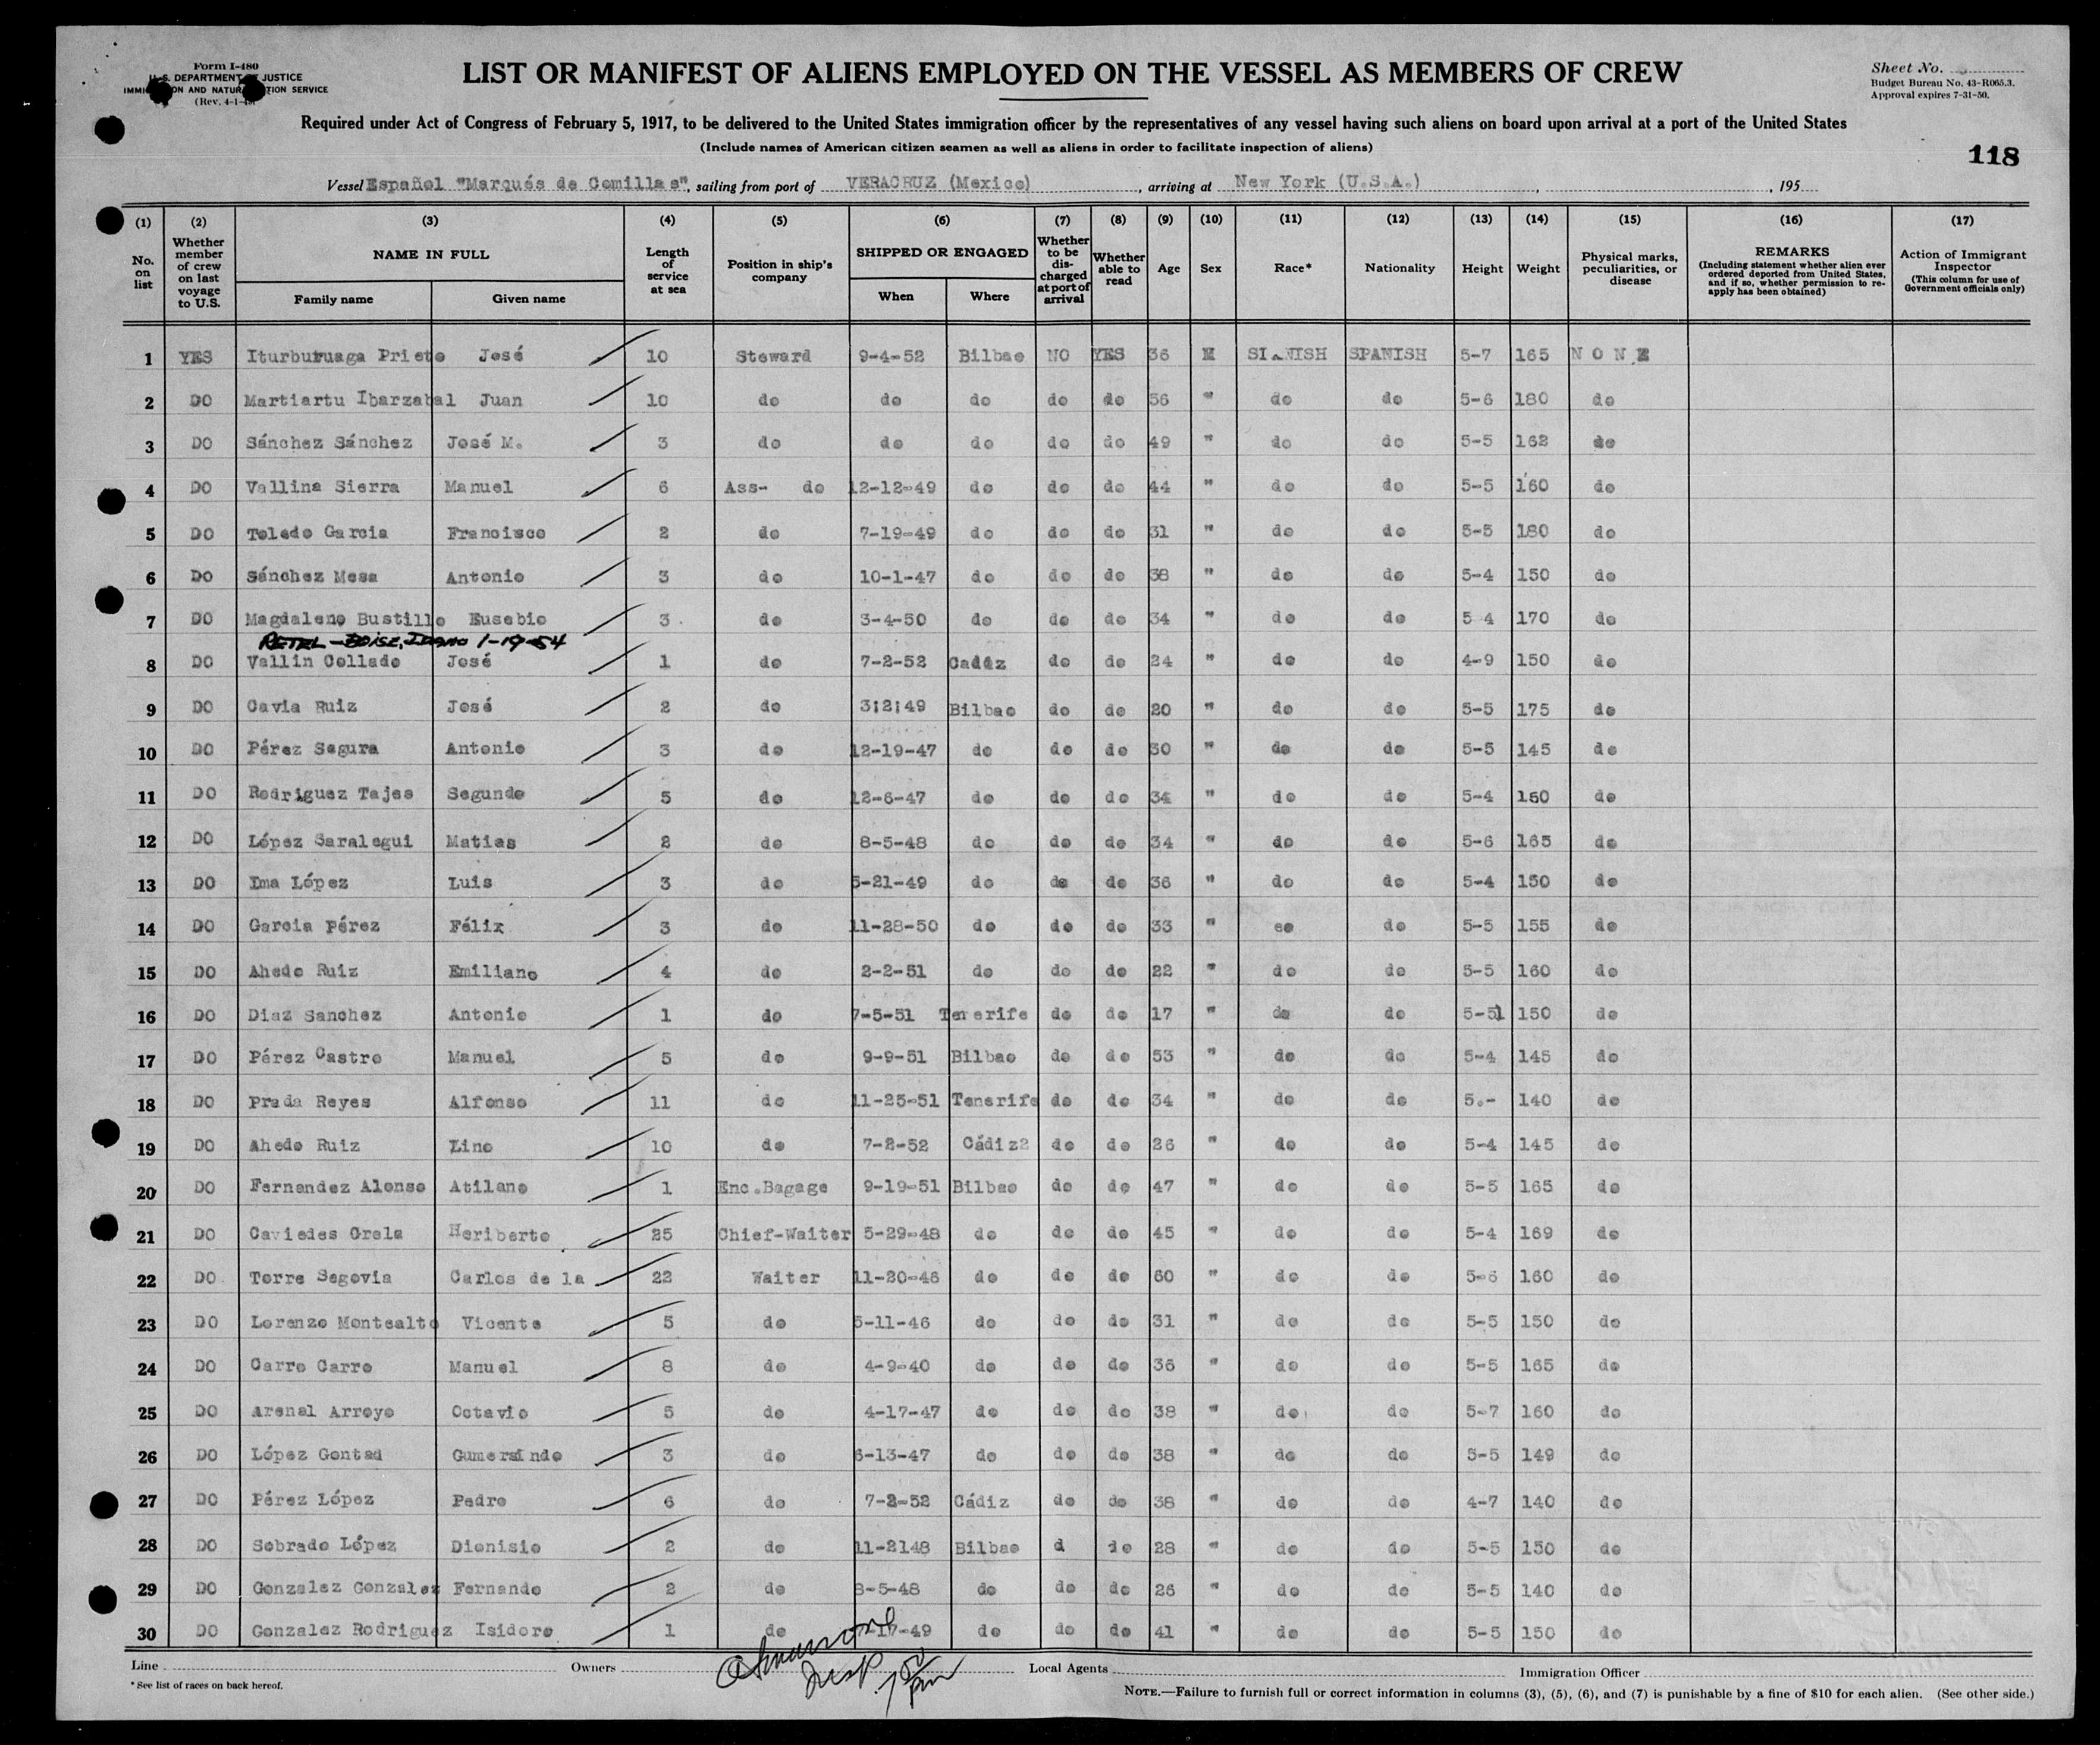 Form I-480
U. S. DEPARTMENT OF JUSTICE
IMMIGRATION AND NATURALIZATION SERVICE
(Rev. 4-1-49)
LIST OR MANIFEST OF ALIENS EMPLOYED ON THE VESSEL AS MEMBERS OF CREW
Sheet No.
Budget Bureau No. 43-R065.3.
Approval expires 7-31-50.
Required under Act of Congress of February 5, 1917, to be delivered to the United States immigration officer by the representatives of any vessel having such aliens on board upon arrival at a port of the United States
(Include names of American citizen seamen as well as aliens in order to facilitate inspection of aliens)
118
Vessel Español "Marqués de Comillas", sailing from port of VERACRUZ (Mexico), arriving at New York (U.S.A.), , 195
(1) (2) (3) (4) (5) (6) (7) (8) (9) (10) (11) (12) (13) (14) (15) (16) (17)
No. on list
Whether member of crew on last voyage to U.S.
NAME IN FULL
Family name Given name
Length of service at sea
Position in ship's company
SHIPPED OR ENGAGED
When Where
Whether to be discharged at port of arrival
Whether able to read
Age Sex Race* Nationality Height Weight
Physical marks, peculiarities, or disease
REMARKS
(Including statement whether alien ever ordered deported from United States, and if so, whether permission to re-apply has been obtained)
Action of Immigrant Inspector
(This column for use of Government officials only)
1 YES Iturburuaga Prieto José 10 Steward 9-4-52 Bilbao NO YES 36 M SPANISH SPANISH 5-7 165 N O N E
2 DO Martiartu Ibarzabal Juan 10 do do do do do 56 " do do 5-6 180 do
3 DO Sánchez Sánchez José M. 3 do do do do do 49 " do do 5-5 162 do
4 DO Vallina Sierra Manuel 6 Ass- do 12-12-49 do do do 44 " do do 5-5 160 do
5 DO Toledo Garcia Francisco 2 do 7-19-49 do do do 31 " do do 5-5 180 do
6 DO Sánchez Mesa Antonio 3 do 10-1-47 do do do 38 " do do 5-4 150 do
7 DO Magdaleno Bustillo Eusebio 3 do 3-4-50 do do do 34 " do do 5 4 170 do
RETEL - BOISE, IDAHO 1-19-54
8 DO Vallin Collado José 1 do 7-2-52 Cadiz do do 24 " do do 4-9 150 do
9 DO Cavia Ruiz José 2 do 3;2;49 Bilbao do do 20 " do do 5-5 175 do
10 DO Pérez Segura Antonio 3 do 12-19-47 do do do 30 " do do 5-5 145 do
11 DO Rodriguez Tajes Segundo 5 do 12-6-47 do do do 34 " do do 5-4 150 do
12 DO López Saralegui Matias 2 do 8-5-48 do do do 34 " do do 5-6 165 do
13 DO Ima López Luis 3 do 5-21-49 do do do 36 " do do 5-4 150 do
14 DO Garcia Pérez Félix 3 do 11-28-50 do do do 33 " eo do 5-5 155 do
15 DO Ahedo Ruiz Emiliano 4 do 2-2-51 do do do 22 " do do 5-5 160 do
16 DO Diaz Sanchez Antonio 1 do 7-5-51 Tenerife do do 17 " do do 5-51 150 do
17 DO Pérez Castro Manuel 5 do 9-9-51 Bilbao do do 53 " do do 5-4 145 do
18 DO Prada Reyes Alfonso 11 do 11-25-51 Tenerife do do 34 " do do 5.- 140 do
19 DO Ahedo Ruiz Lino 10 do 7-2-52 Cádiz2 do do 26 " do do 5-4 145 do
20 DO Fernandez Alonso Atilano 1 Enc.Bagage 9-19-51 Bilbao do do 47 " do do 5-5 165 do
21 DO Caviedes Grela Heriberto 25 Chief-Waiter 5-29-48 do do do 45 " do do 5-4 169 do
22 DO Torre Segovia Carlos de la 22 Waiter 11-20-46 do do do 60 " do do 5-6 160 do
23 DO Lorenzo Montealto Vicente 5 do 5-11-46 do do do 31 " do do 5-5 150 do
24 DO Carro Carro Manuel 8 do 4-9-40 do do do 36 " do do 5-5 165 do
25 DO Arenal Arroyo Octavio 5 do 4-17-47 do do do 38 " do do 5-7 160 do
26 DO López Gontad Gumersindo 3 do 6-13-47 do do do 38 " do do 5-5 149 do
27 DO Pérez López Pedro 6 do 7-2-52 Cádiz do do 38 " do do 4-7 140 do
28 DO Sobrado López Dionisio 2 do 11-2148 Bilbao d do 28 " do do 5-5 150 do
29 DO Gonzalez Gonzalez Fernando 2 do 8-5-48 do do do 26 " do do 5-5 140 do
30 DO Gonzalez Rodriguez Isidoro 1 do 17-49 do do do 41 " do do 5-5 150 do
Line Owners Local Agents Immigration Officer
Insp. 7 50 pm
* See list of races on back hereof.
NOTE.—Failure to furnish full or correct information in columns (3), (5), (6), and (7) is punishable by a fine of $10 for each alien. (See other side.)